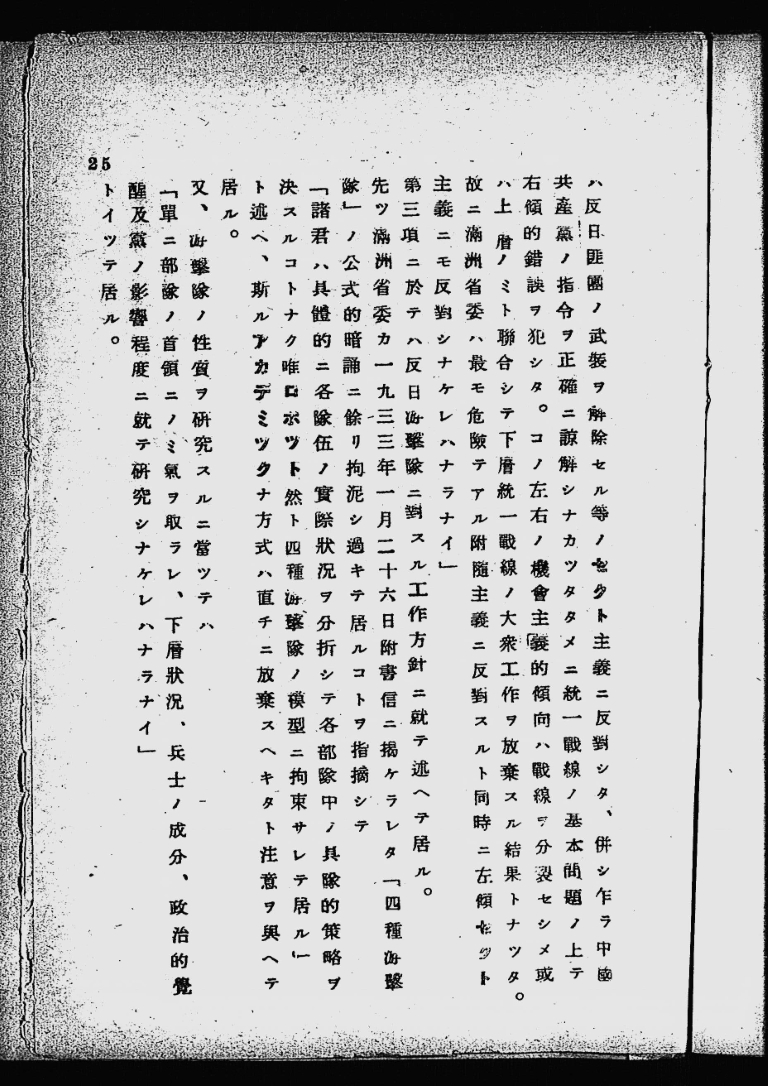 ハ反日匪團ノ武裝ヲ解除セル等ノセクト主義ニ反對シタ、併シ乍ラ中國
共產黨ノ指令ヲ正確ニ諒解シナカツタタメニ統一戰線ノ基本問題ノ上テ
右傾的錯誤ヲ犯シタ。コノ左右ノ機會主義的傾向ハ戰線ヲ分裂セシメ或
ハ上層ノミト聯合シテ下層統一戰線ノ大衆工作ヲ放棄スル結果トナツタ。
故ニ滿洲省委ハ最モ危險テアル附隨主義ニ反對スルト同時ニ左傾セクト
主義ニモ反對シナケレハナラナイ」
第三項ニ於テハ反日游擊隊ニ對スル工作方針ニ就テ述ヘテ居ル。
先ツ滿洲省委カ一九三三年一月二十六日附書信ニ揭ケラレタ「四種游擊
隊」ノ公式的暗誦ニ餘リ拘泥シ過キテ居ルコトヲ指摘シテ
「諸君ハ具體的ニ各隊伍ノ實際狀況ヲ分折シテ各部隊中ノ具隊的策略ヲ
決スルコトナク唯ロホツト然ト四種游擊隊ノ模型ニ拘束サレテ居ル」
ト述ヘ、斯ルアカデミツクナ方式ハ直チニ放棄スヘキタト注意ヲ與ヘテ
居ル。
又、游擊隊ノ性質ヲ研究スルニ當ツテハ
「單ニ部隊ノ首領ニノミ氣ヲ取ラレ、下層狀況、兵士ノ成分、政治的覺
醒及黨ノ影響程度ニ就テ研究シナケレハナラナイ」
トイツテ居ル。
25